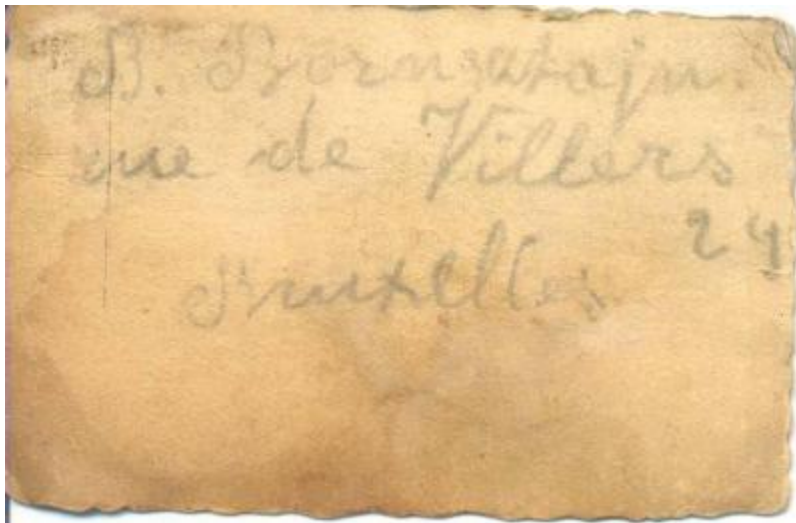 B. Bornsztajn
rue de Villers
24
Bruxelles